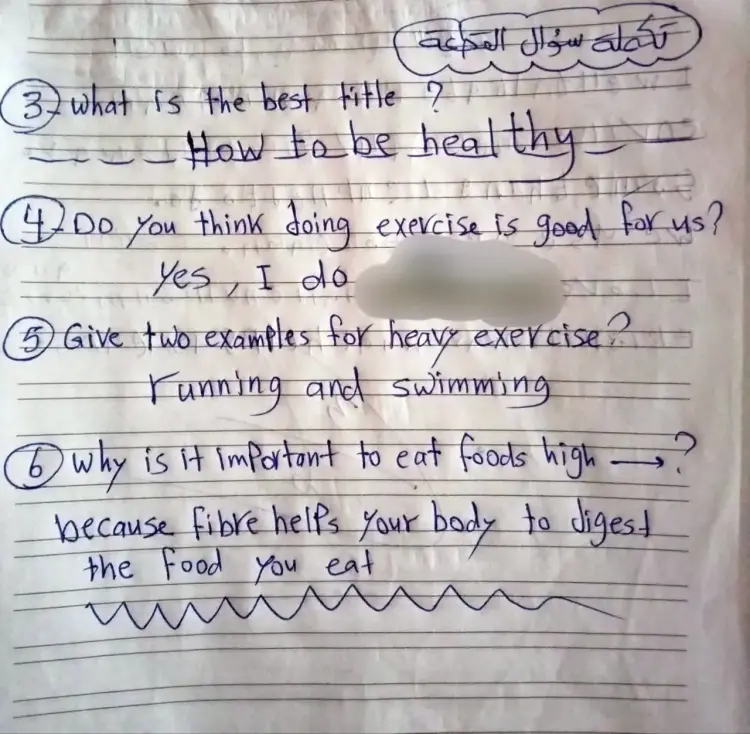 تكملة سؤال القطعة
3 - what is the best title ?
How to be healthy
4 - Do you think doing exercise is good for us?
Yes, I do
5 Give two examples for heavy exercise?
running and swimming
6 why is it important to eat foods high →?
because fibre helps your body to digest
the food you eat